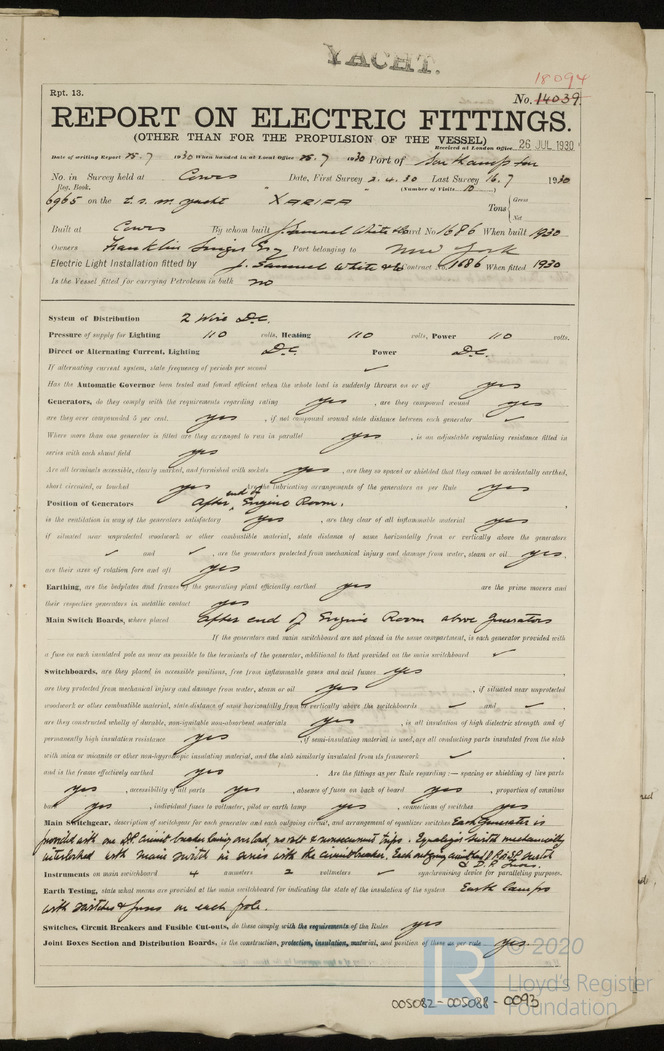 YACHT.
18094
Rpt. 13. No. 14039.
REPORT ON ELECTRIC FITTINGS.
(OTHER THAN FOR THE PROPULSION OF THE VESSEL)
Received at London Office 26 JUL 1930
Date of writing Report 25.7 1930 When handed in at Local Office 25.7 1930 Port of Southampton
No. in Survey held at Cowes Date, First Survey 2.4.30 Last Survey 16.7 1930
Reg. Book. (Number of Visits 10)
6965 on the t.s.m. yacht XARIFA Tons { Gross
Net
Built at Cowes By whom built J. Samuel White & Co Yard No. 1686 When built 1930
Owners Franklin Singer Esq Port belonging to New York
Electric Light Installation fitted by J. Samuel White & Co Contract No. 1686 When fitted 1930
Is the Vessel fitted for carrying Petroleum in bulk no
System of Distribution 2 Wire D.C.
Pressure of supply for Lighting 110 volts, Heating 110 volts, Power 110 volts.
Direct or Alternating Current, Lighting D.C. Power D.C.
If alternating current system, state frequency of periods per second ✓
Has the Automatic Governor been tested and found efficient when the whole load is suddenly thrown on or off yes
Generators, do they comply with the requirements regarding rating yes, are they compound wound yes
are they over compounded 5 per cent. yes, if not compound wound state distance between each generator ✓
Where more than one generator is fitted are they arranged to run in parallel yes, is an adjustable regulating resistance fitted in
series with each shunt field yes
Are all terminals accessible, clearly marked, and furnished with sockets yes, are they so spaced or shielded that they cannot be accidentally earthed,
short circuited, or touched yes Are the lubricating arrangements of the generators as per Rule yes
Position of Generators After end of Engine Room.
is the ventilation in way of the generators satisfactory yes, are they clear of all inflammable material yes
if situated near unprotected woodwork or other combustible material, state distance of same horizontally from or vertically above the generators
✓ and ✓, are the generators protected from mechanical injury and damage from water, steam or oil yes,
are their axes of rotation fore and aft yes
Earthing, are the bedplates and frames of the generating plant efficiently earthed yes are the prime movers and
their respective generators in metallic contact yes
Main Switch Boards, where placed After end of Engine Room above generators
If the generators and main switchboard are not placed in the same compartment, is each generator provided with
a fuse on each insulated pole as near as possible to the terminals of the generator, additional to that provided on the main switchboard ✓
Switchboards, are they placed in accessible positions, free from inflammable gases and acid fumes yes
are they protected from mechanical injury and damage from water, steam or oil yes, if situated near unprotected
woodwork or other combustible material, state distance of same horizontally from or vertically above the switchboards ✓ and ✓,
are they constructed wholly of durable, non-ignitable non-absorbent materials yes, is all insulation of high dielectric strength and of
permanently high insulation resistance yes, if semi-insulating material is used, are all conducting parts insulated from the slab
with mica or micanite or other non-hygroscopic insulating material, and the slab similarly insulated from its framework ✓
and is the frame effectively earthed yes. Are the fittings as per Rule regarding :— spacing or shielding of live parts
yes, accessibility of all parts yes, absence of fuses on back of board yes, proportion of omnibus
bars yes, individual fuses to voltmeter, pilot or earth lamp yes, connections of switches yes
Main Switchgear, description of switchgear for each generator and each outgoing circuit, and arrangement of equalizer switches Each generator is
provided with one D.P. circuit breaker having overload, no volt & reverse current trips. Equalizer switch mechanically
interlocked with main switch in series with the circuit breaker. Each outgoing circuit has D.P. switch
& D.P. fuses.
Instruments on main switchboard 4 ammeters 2 voltmeters ✓ synchronising device for paralleling purposes.
Earth Testing, state what means are provided at the main switchboard for indicating the state of the insulation of the system Earth lamps
with switches & fuses on each pole.
Switches, Circuit Breakers and Fusible Cut-outs, do these comply with the requirements of the Rules yes
Joint Boxes Section and Distribution Boards, is the construction, protection, insulation, material, and position of these as per rule yes.
© 2020
LR Lloyd's Register
Foundation
005082-005088-0093